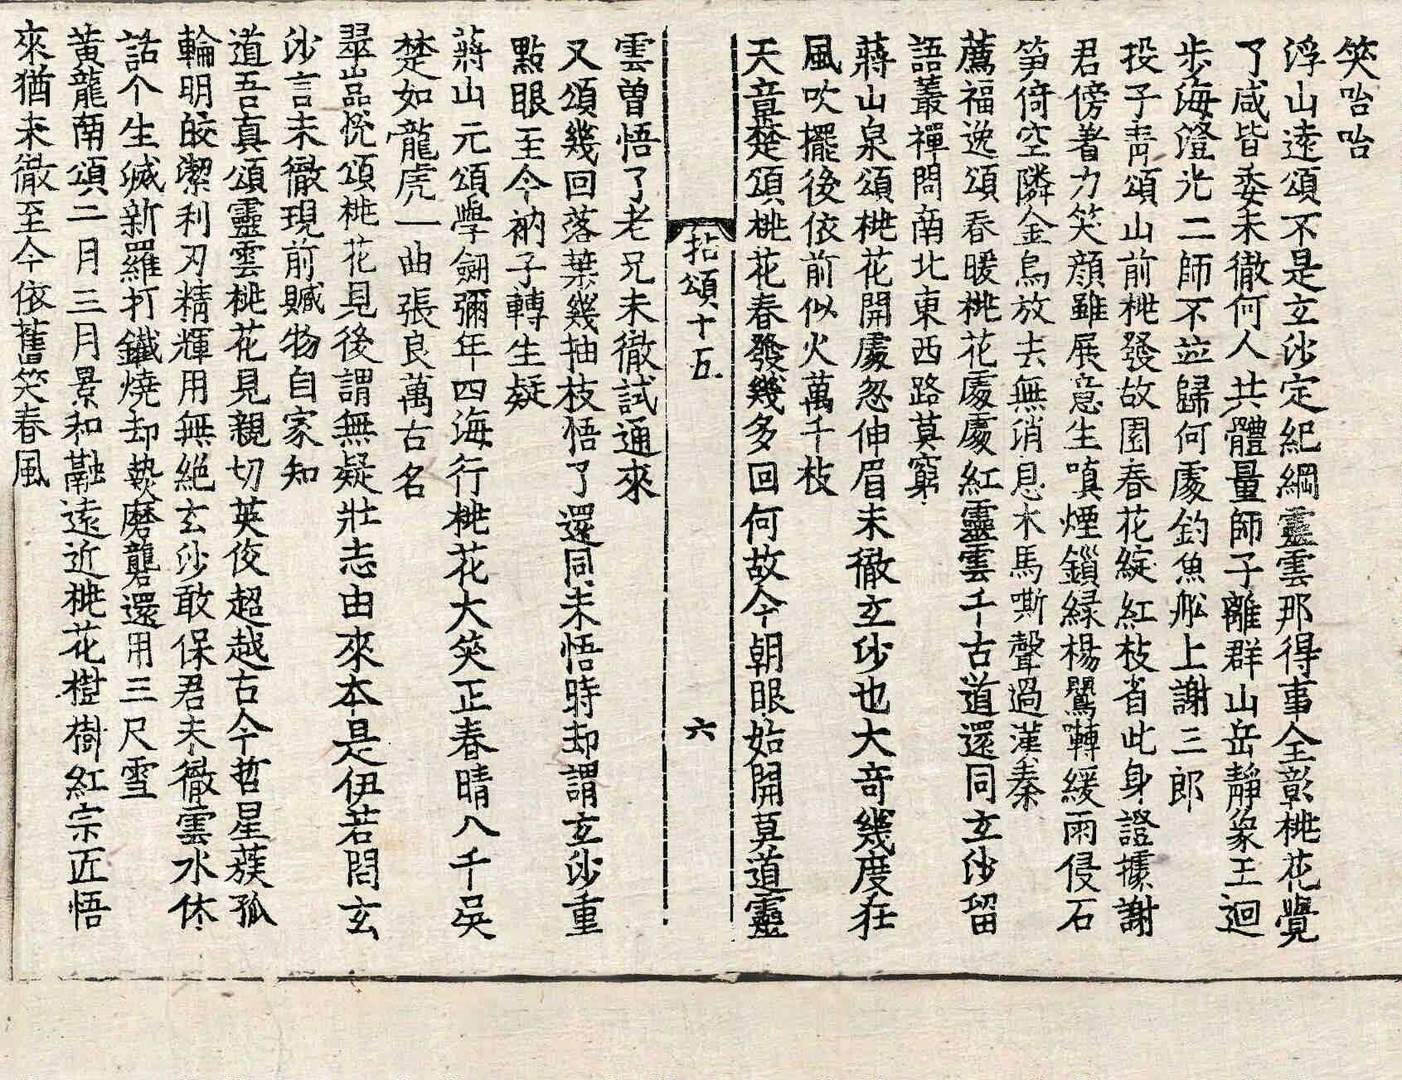 笑咍咍
浮山遠頌不是玄沙定紀綱靈雲那得事全彰桃花覺
了咸皆委未徹何人共體量師子離群山岳靜象王迴
步海澄光二師不並歸何處釣魚舩上謝三郎
投子靑頌山前桃發故園春花綻紅枝省此身證據謝
君傍著力笑顔雖展意生嗔煙鎖緑楊鸎囀緩雨侵石
笋倚空隣金烏放去無消息木馬嘶聲過漢秦
薦福逸頌春暖桃花處處紅靈雲千古道還同玄沙留
語叢禪問南北東西路莫窮
蔣山泉頌桃花開處忽伸眉未徹玄沙也大奇幾度狂
風吹擺後依前似火萬千枝
天章楚頌桃花春發幾多回何故今朝眼始開莫道靈
拈頌十五 六
雲曾悟了老兄未徹試通來
又頌幾回落葉幾抽枝悟了還同未悟時却謂玄沙重
點眼至今衲子轉生疑
蔣山元頌學劒彌年四海行桃花大笑正春晴八千吳
楚如龍虎一曲張良萬古名
翠嵓悅頌桃花見後謂無疑壯志由來本是伊若問玄
沙言未徹現前贓物自家知
道吾眞頌靈雲桃花見親切英俊超越古今哲星蔟孤
輪明皎潔利刃精輝用無絶玄沙敢保君未徹雲水休
詁个生滅新羅打鐵燒却𫝑磨礱還用三尺雪
黃龍南頌二月三月景和融遠近桃花樹樹紅宗匠悟
來猶未徹至今依舊笑春風